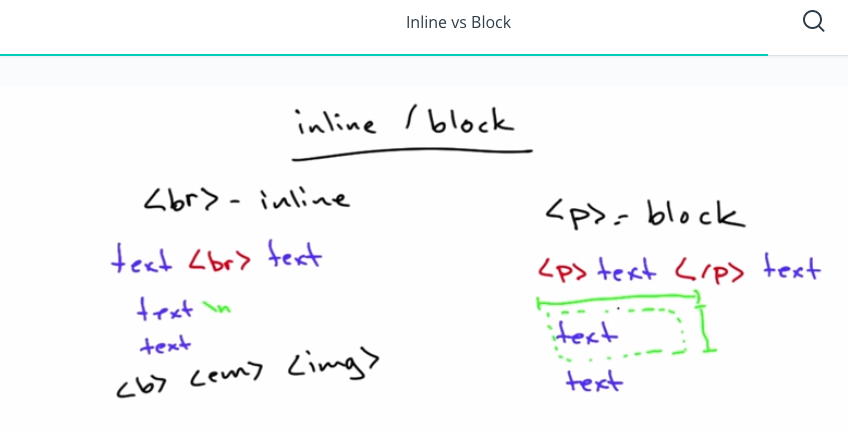 Inline vs Block
inline / block
<br> - inline
text <br> text
text \n
text
<b> <em> <img>
<p> - block
<p> text </p> text
text
text